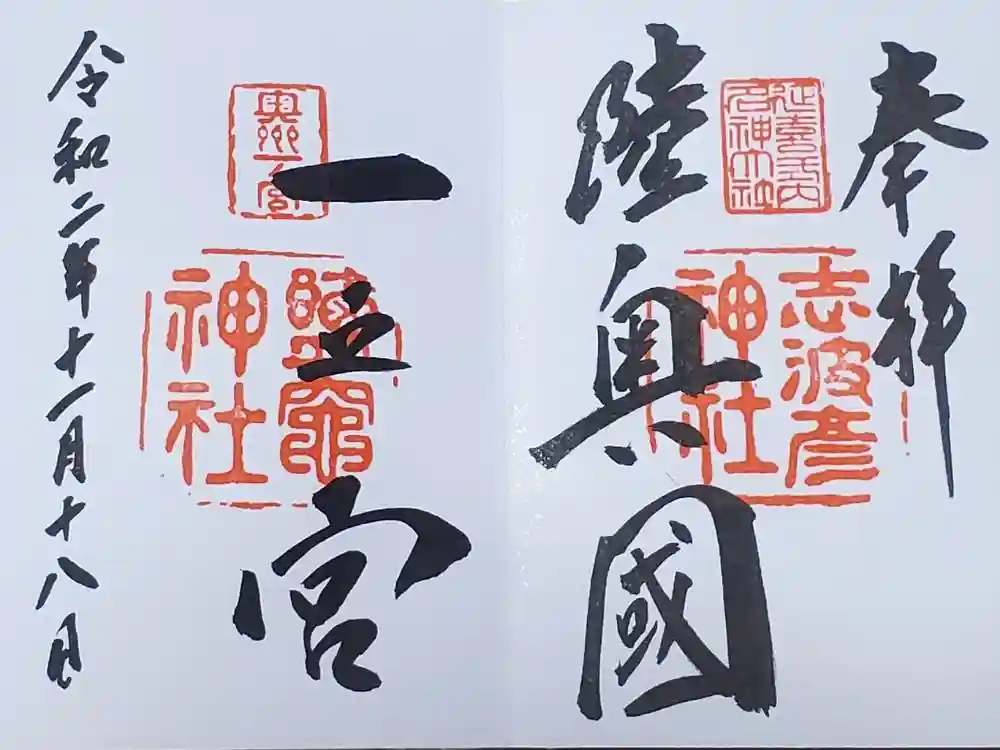 奉拝
延喜式内
名神大社
志波彦
神社
陸奥國
一之宮
奥州一宮
鹽竈
神社
令和二年十一月十八日